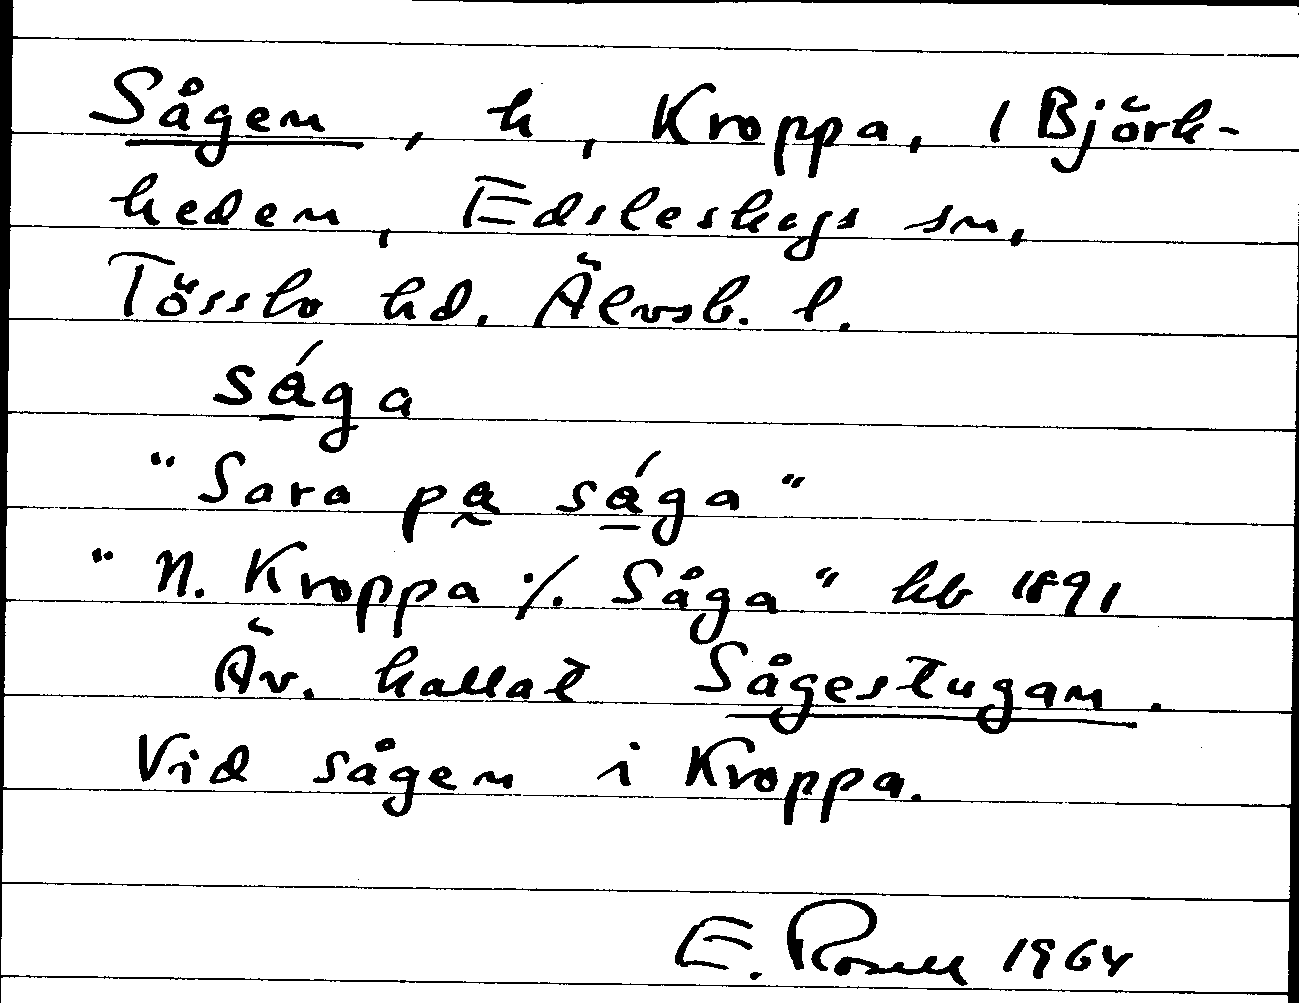 Sågen, h, Kroppa, 1 Björk-
heden, Edsleskogs sn,
Tössbo hd. Älvsb. l.
sá̱ga
"Sara pa̰ sá̱ga"
"N. Kroppa ·/. Såga" hb 1891
Äv. kallat Sågestugan.
Vid sågen i Kroppa.
E. 1964